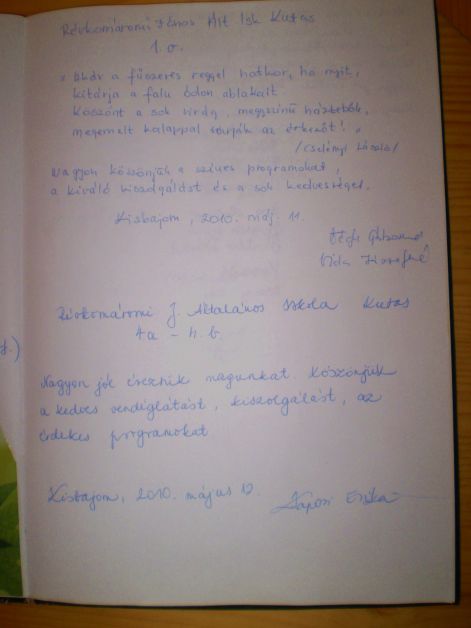 Révkomáromi János Ált Isk Kutas
1. o.
„ Akár a fűszeres reggel hatkor, ha nyit,
kitárja a falu ódon ablakait.
Köszönt a sok virág, meggyszínű háztetők,
megemelt kalappal várják az érkezőt! "
/Cselényi László/
Nagyon köszönjük a színes programokat,
a kiváló kiszolgálást és a sok kedvességet.
Kisbajom, 2010. máj. 11.
Gáborné
Vida Józsefné
Révkomáromi J. Általános Iskola Kutas
4.a - 4. b.
d.)
Nagyon jól éreztük magunkat. Köszönjük
a kedves vendéglátást, kiszolgálást, az
érdekes programokat
Kisbajom, 2010. május 12.
Kaposi Erika